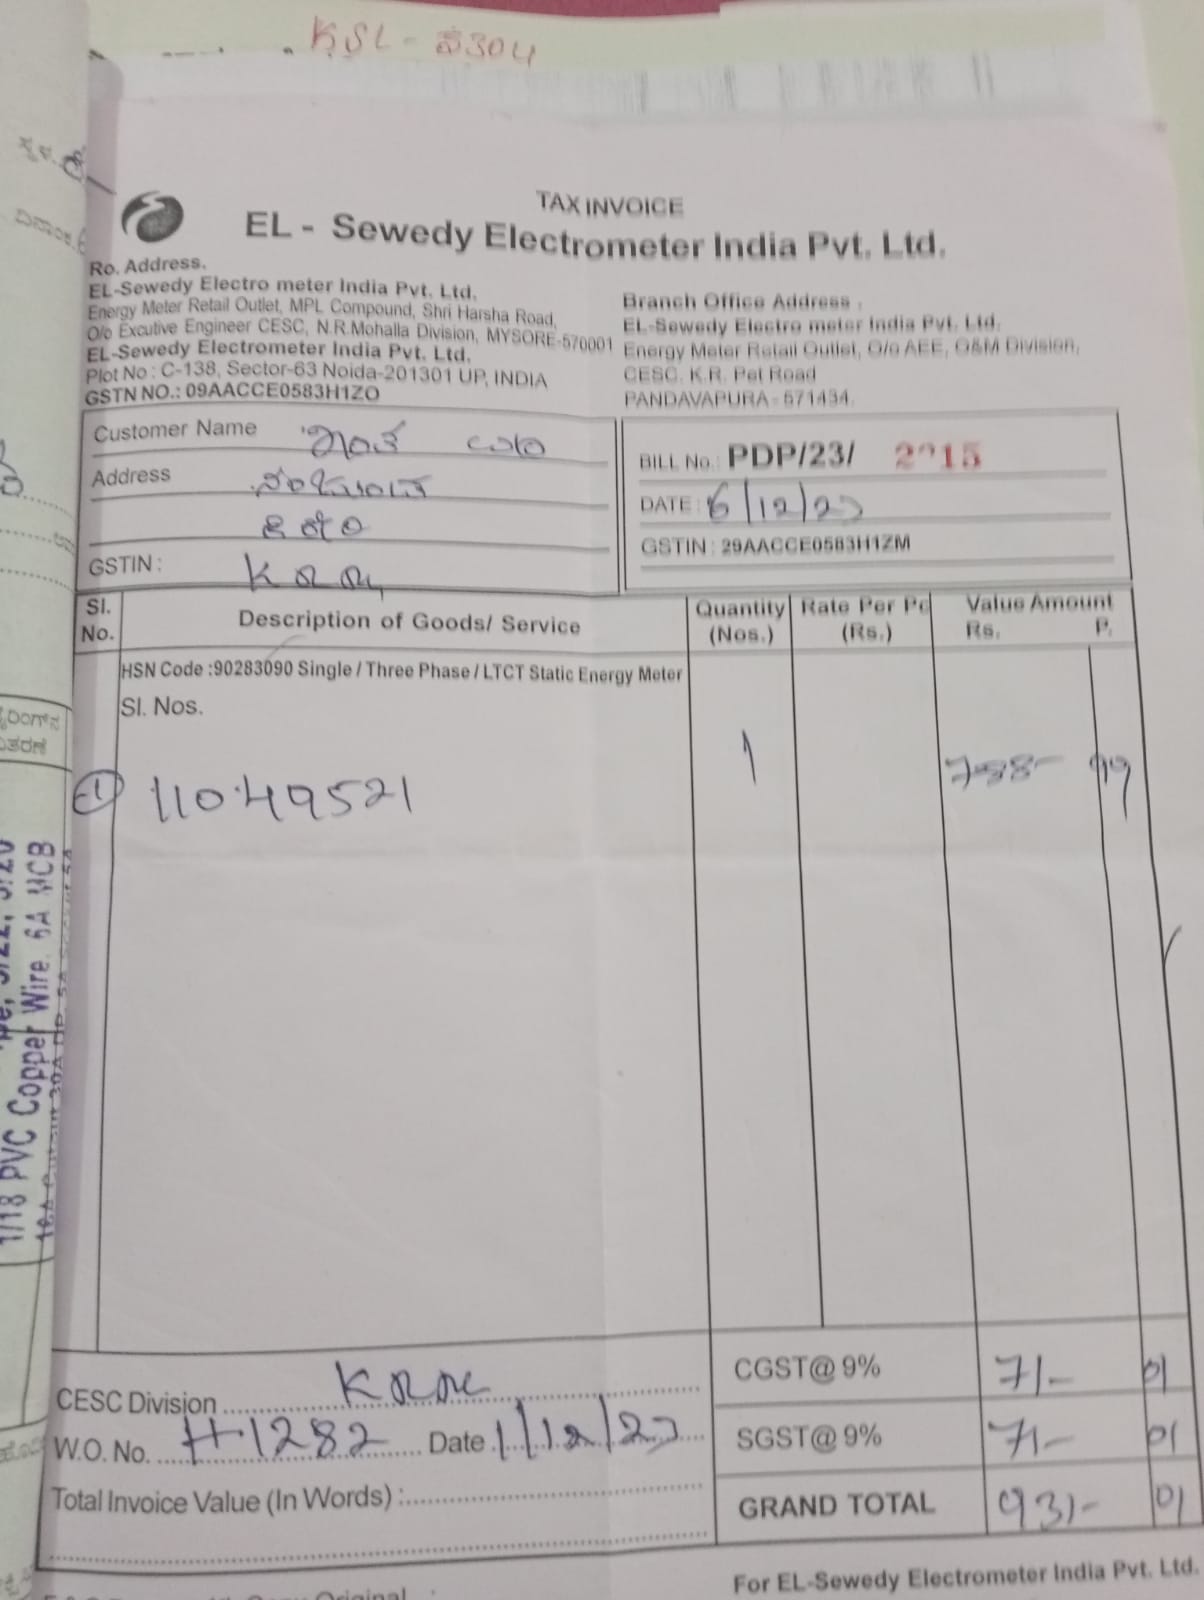 KSL -
TAX INVOICE
EL - Sewedy Electrometer India Pvt. Ltd.
Ro. Address.
EL-Sewedy Electro meter India Pvt. Ltd.
Energy Meter Retail Outlet, MPL Compound, Shri Harsha Road,
O/o Excutive Engineer CESC, N.R.Mohalla Division, MYSORE-570001
EL-Sewedy Electrometer India Pvt. Ltd.
Plot No : C-138, Sector-63 Noida-201301 UP, INDIA
GSTN NO.: 09AACCE0583H1ZO
Branch Office Address .
EL-Sewedy Electro meter India Pvt. Ltd.
Energy Meter Retail Outlet, O/o AEE, O&M Division,
CESC. K.R. Pet Road
PANDAVAPURA - 571434.
Customer Name
Address
GSTIN :
BILL No.: PDP/23/
DATE : 6/12/23
GSTIN : 29AACCE0583H1ZM
Sl. No. Description of Goods/ Service Quantity (Nos.) Rate Per Pc (Rs.) Value Amount Rs. P.
HSN Code :90283090 Single / Three Phase / LTCT Static Energy Meter
Sl. Nos.
1 11049521 1 788- 99
CESC Division
CGST@ 9% 71- 01
W.O. No. H1282 Date 1/12/23
SGST@ 9% 71- 01
Total Invoice Value (In Words) :
GRAND TOTAL 931- 01
For EL-Sewedy Electrometer India Pvt. Ltd.
Original
1/18 PVC Copper Wire. 6A MCB